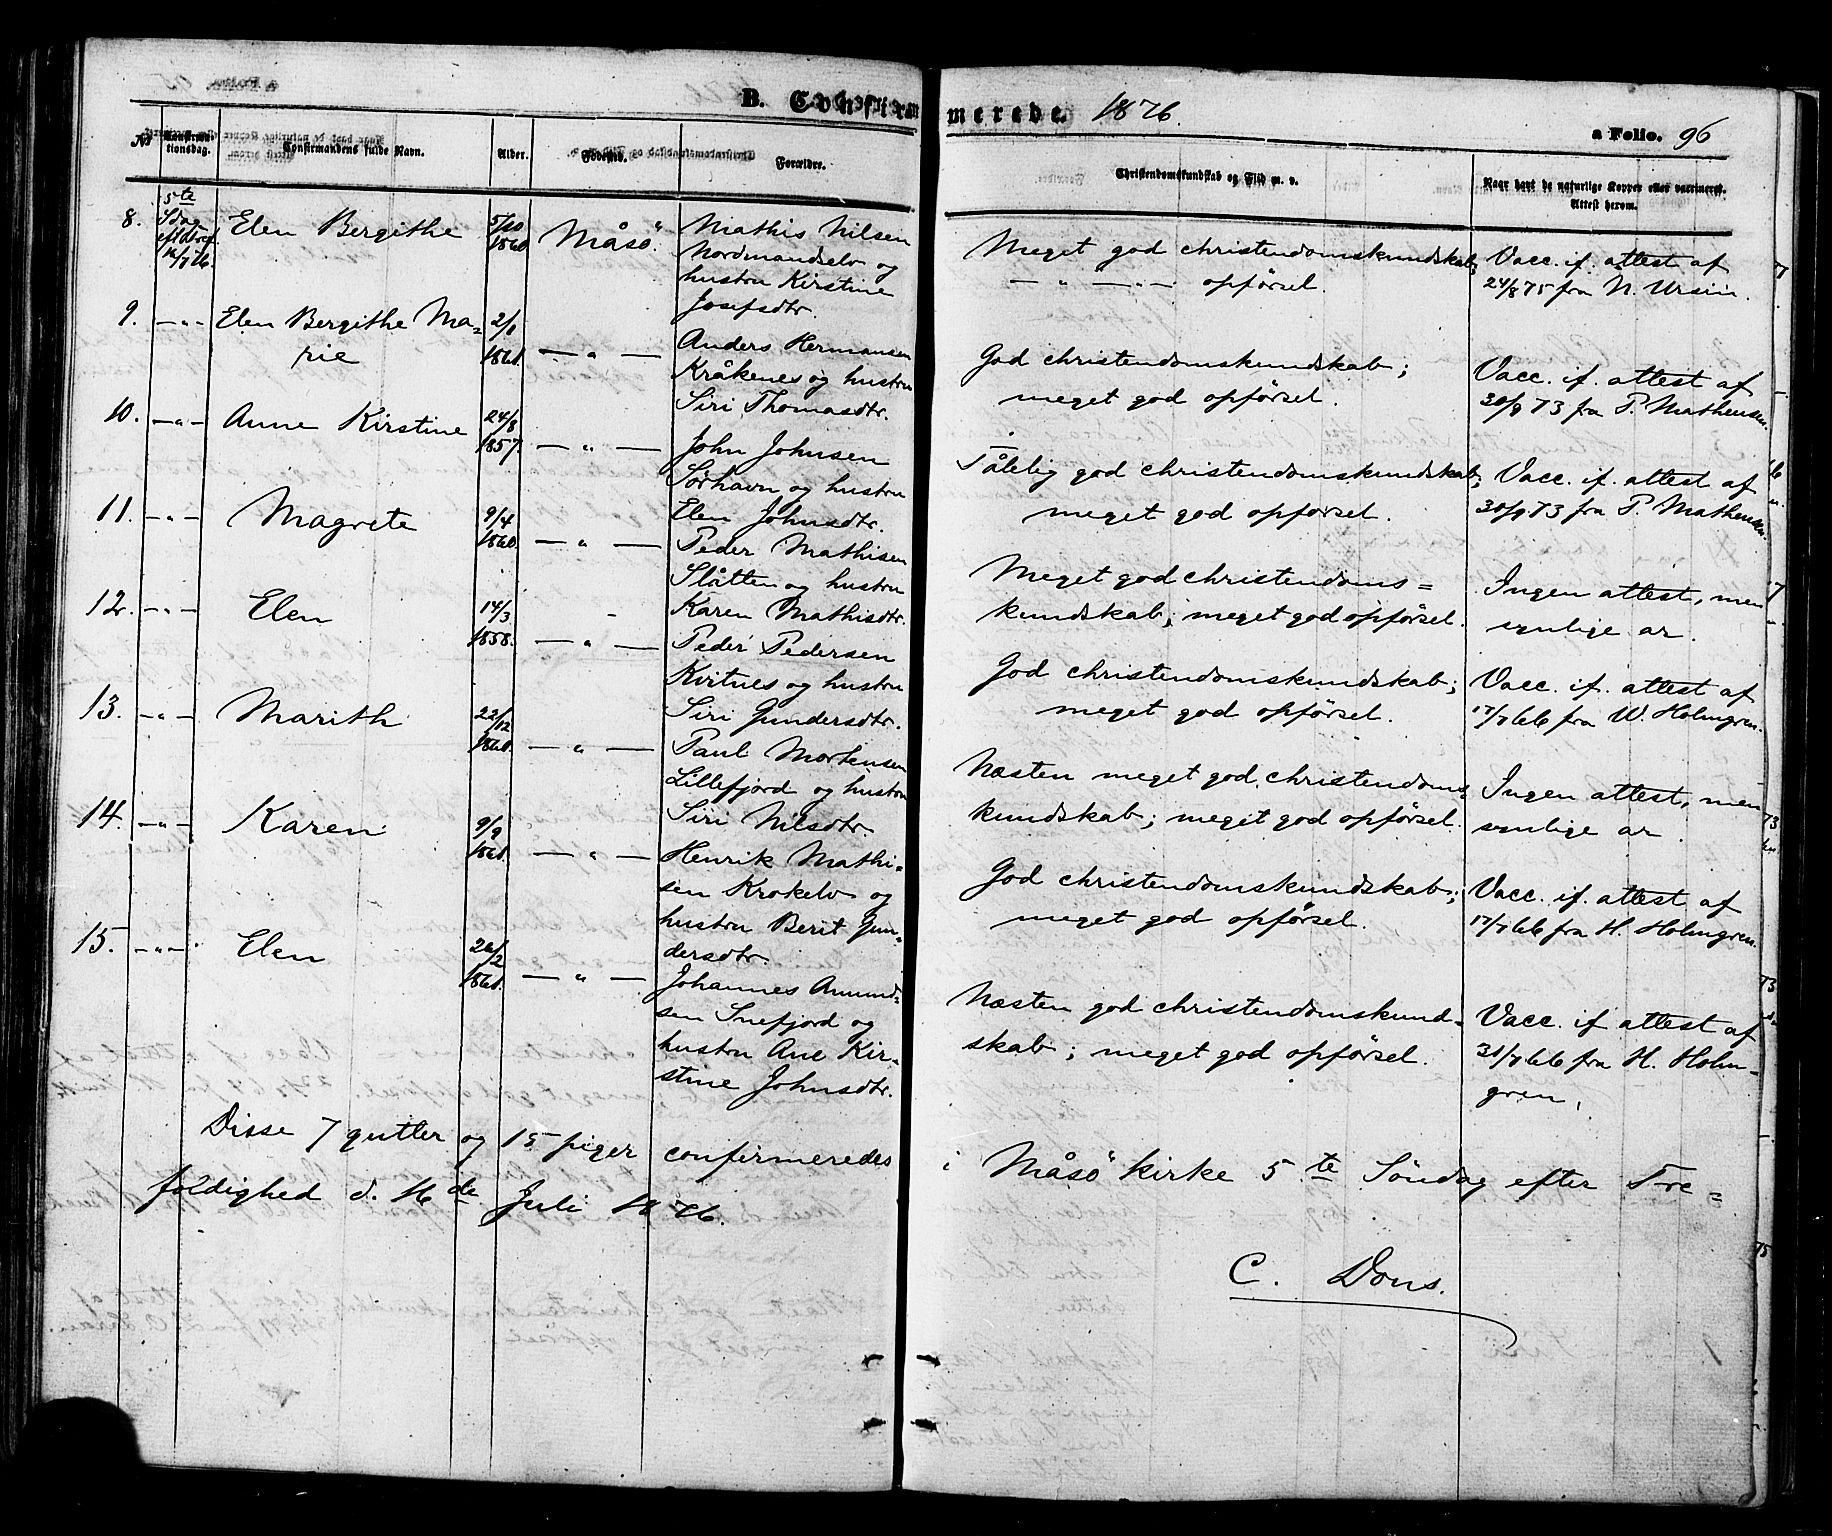 B. Confirmerede. 1876.
a Folio. 96
No
Konfirmationsdag.
Confirmandens fulde Navn.
Alder.
Fødested.
Forældre.
Christendomskundskab og Flid m. v.
Naar havt de naturlige Kopper eller vaccineret. Attest herom.
8.
5te
Elen Bergithe
5/10
1860
Måsö.
Mathis Nilsen
Nordmandselv og
hustru Kirstine
Josefsdtr.
Meget god christendomskundskab;
— " — — " — opförsel.
Vacc. if. attest af
24/8 75 fra N. Ursin.
9.
— " —
Elen Bergithe Ma=
rie
2/1
1861.
— " —
Anders Hermansen
Kråkenes og hustru
Siri Thomasdtr.
God christendomskundskab;
meget god opförsel.
Vacc. if. attest af
30/9 73 fra P. Mathensen.
10.
— " —
Anne Kirstine
24/8
1857.
— " —
John Johnsen
Sörhavn og hustru
Elen Johnsdtr.
Tålelig god christendomskundskab;
meget god opförsel.
Vacc. if. attest af
30/9 73 fra P. Mathensen.
11.
— " —
Magrete
9/4
1860.
— " —
Peder Mathisen
Slåtten og hustru
Karen Mathisdtr.
Meget god christendoms=
kundskab; meget god opförsel.
Ingen attest, men
synlige ar.
12.
— " —
Elen
14/3
1858.
— " —
Peder Pedersen
Kvitnes og hustru
Siri Gundersdtr.
God christendomskundskab;
meget god opförsel.
Vacc. if. attest af
17/7 66 fra W. Holmgren.
13.
— " —
Marith
22/12
1860.
— " —
Paul Mortensen
Lillefjord og hustru
Siri Nilsdtr.
Næsten meget god christendoms=
kundskab; meget god opförsel.
Ingen attest, men
synlige ar.
14.
— " —
Karen
9/9
1861.
— " —
Henrik Mathi=
sen Krokelv og
hustru Berit Gun=
dersdtr.
God christendomskundskab;
meget god opförsel.
Vacc. if. attest af
17/7 66 fra H. Holmgren.
15.
— " —
Elen
26/2
1861.
— " —
Johannes Amund=
sen Snefjord og
hustru Ane Kir=
stine Johnsdtr.
Næsten god christendomskund=
skab; meget god opförsel.
Vacc. if attest af
31/7 66 fra H. Holm=
gren.
Disse 7 gutter og 15 piger confirmeredes i Måsö kirke 5te Söndag efter Tre=
foldighed d. 16de Juli 1876.
C. Dons.